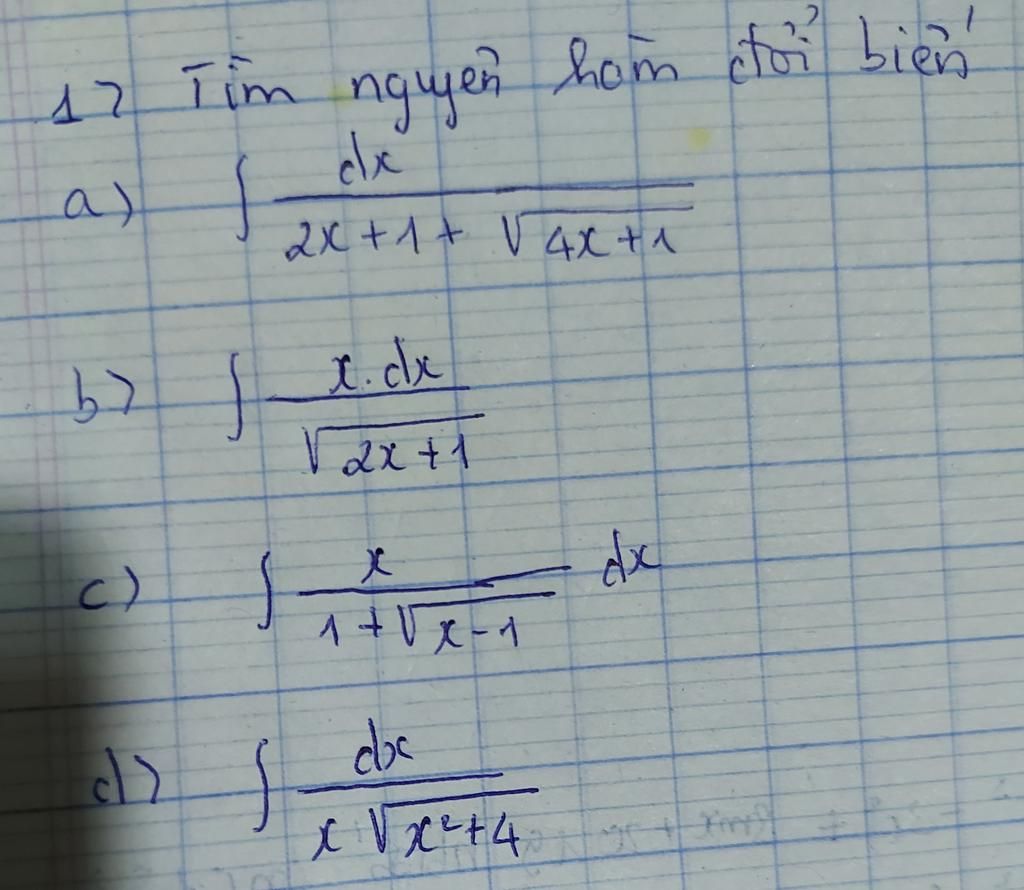 1> Tìm nguyên hàm đổi biến
a) ∫ dx / (2x + 1 + √(4x + 1))
b> ∫ x.dx / √(2x + 1)
c) ∫ x / (1 + √(x - 1)) dx
d> ∫ dx / (x √(x² + 4))